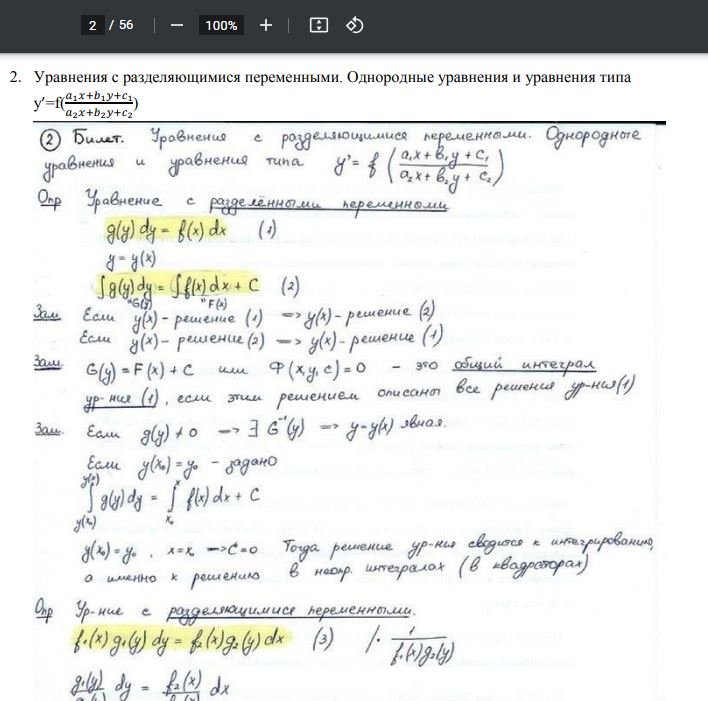 2 / 56 100%
2. Уравнения с разделяющимися переменными. Однородные уравнения и уравнения типа
y'=f(a₁x+b₁y+c₁/a₂x+b₂y+c₂)
② Билет. Уравнения с разделяющимися переменными. Однородные
уравнения и уравнения типа y' = f (a₁x + b₁y + c₁ / a₂x + b₂y + c₂)
Опр Уравнение с разделёнными переменными
g(y) dy = f(x) dx (1)
y = y(x)
∫g(y)dy = ∫f(x)dx + C (2)
"G(y) "F(x)
Зам Если y(x) - решение (1) => y(x) - решение (2)
Если y(x) - решение (2) => y(x) - решение (1)
Зам. G(y) = F(x) + C или Ф(x,y,c) = 0 - это общий интеграл
ур-ния (1), если этим решением описаны все решения ур-ния (1)
Зам. Если g(y) ≠ 0 => ∃ G⁻¹(y) => y=y(x) явная.
Если y(x₀) = y₀ - задано
y(x) x
∫ g(y) dy = ∫ f(x) dx + C
y(x₀) x₀
y(x₀) = y₀, x=x₀ => C=0 Тогда решение ур-ния сводится к интегрированию,
а именно к решению в неопр. интегралах (в квадраторах)
Опр Ур-ние с разделяющимися переменными.
f₁(x) g₁(y) dy = f₂(x) g₂(y) dx (3) /· 1/f₁(x)g₂(y)
g₁(y) dy = f₂(x) dx